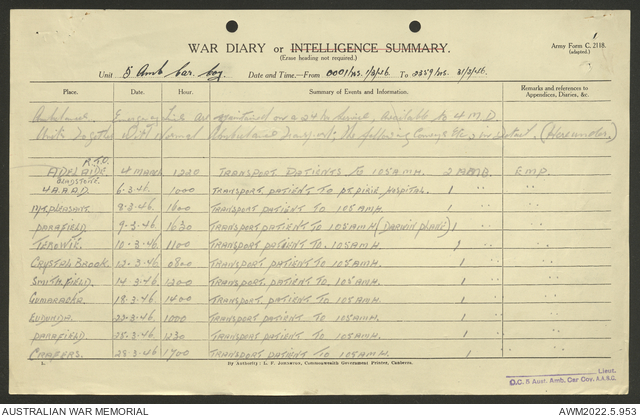 1
WAR DIARY or INTELLIGENCE SUMMARY.
Army Form C. 2118.
(adapted.)
(Erase heading not required.)
Unit 5 Amb Car Coy. Date and Time—From 0001/hrs. 1/3/46. To 2359/hrs. 31/3/46.
Place. Date. Hour. Summary of Events and Information. Remarks and references to Appendices, Diaries, &c.
Ambulance Emergency maintained on a 24 hr available to 4 M.D.
Units together with normal Ambulance Transport, the following convoys (Hereunder.)
R.T.O.
ADELAIDE. 4 MARCH 1220 TRANSPORT PATIENTS TO 105 A.M.H. 2 E.M.P.
GLADSTONE.
4 A.A.O.D. 6.3.46. 1000 TRANSPORT PATIENT TO PT PIRIE HOSPITAL. 1 " "
MT. PLEASANT. 8.3.46. 1600 TRANSPORT PATIENT TO 105 A.M.H. 1 " "
PARAFIELD. 9.3.46. 1630 TRANSPORT PATIENT TO 105 A.M.H. (DARWIN PLANE) 1 " "
TEROWIE. 10.3.46. 1100 TRANSPORT PATIENT TO 105 A.M.H. 1 " "
CRYSTAL BROOK. 12.3.46. 0800 TRANSPORT PATIENT TO 105 A.M.H. 1 " "
SMITHFIELD. 14.3.46. 1200 TRANSPORT PATIENT TO 105 A.M.H. 1 " "
GUMERACHA. 18.3.46. 1400 TRANSPORT PATIENT TO 105 A.M.H. 1 " "
EUDUNDA. 22.3.46. 1000 TRANSPORT PATIENT TO 105 A.M.H. 1 " "
PARAFIELD. 25.3.46. 1230 TRANSPORT PATIENT TO 105 A.M.H. 1 " "
CRAFERS. 28.3.46. 1700 TRANSPORT PATIENT TO 105 A.M.H. 1 " "
By Authority: L. F. Johnston, Commonwealth Government Printer, Canberra.
Lieut.
O.C. 5 Aust. Amb. Car Coy. A.A.S.C.
AUSTRALIAN WAR MEMORIAL
AWM2022.5.953